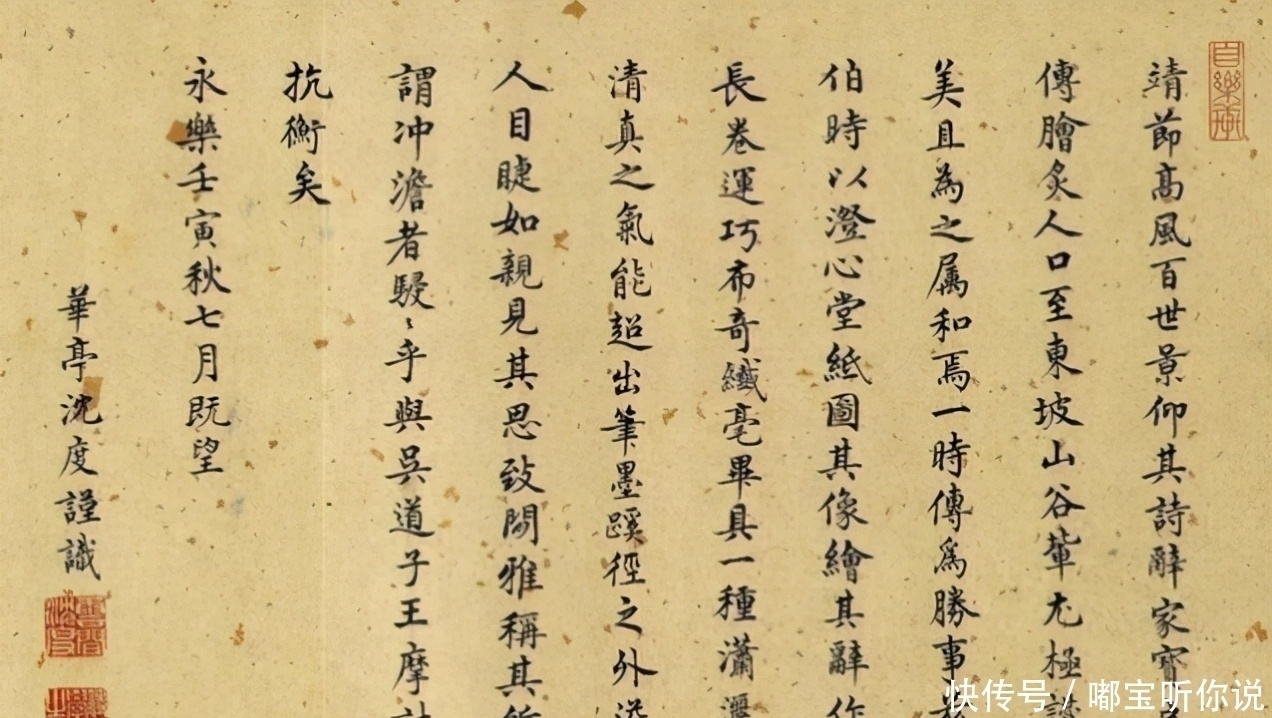 靖節高風百世景仰其詩辭家
傳膾炙人口至東坡山谷輩尤極
美且為之属和焉一時傳為勝事
伯時以澄心堂紙圖其像繪其辭作
長卷運巧布奇纖毫畢具一種瀟
清真之氣能超出筆墨蹊徑之外
人目睫如親見其思致閒雅稱其所
謂冲澹者駸〻乎與吳道子王摩
抗衡矣
永樂壬寅秋七月既望
華亭沈度謹識
快传号/嘟宝听你说